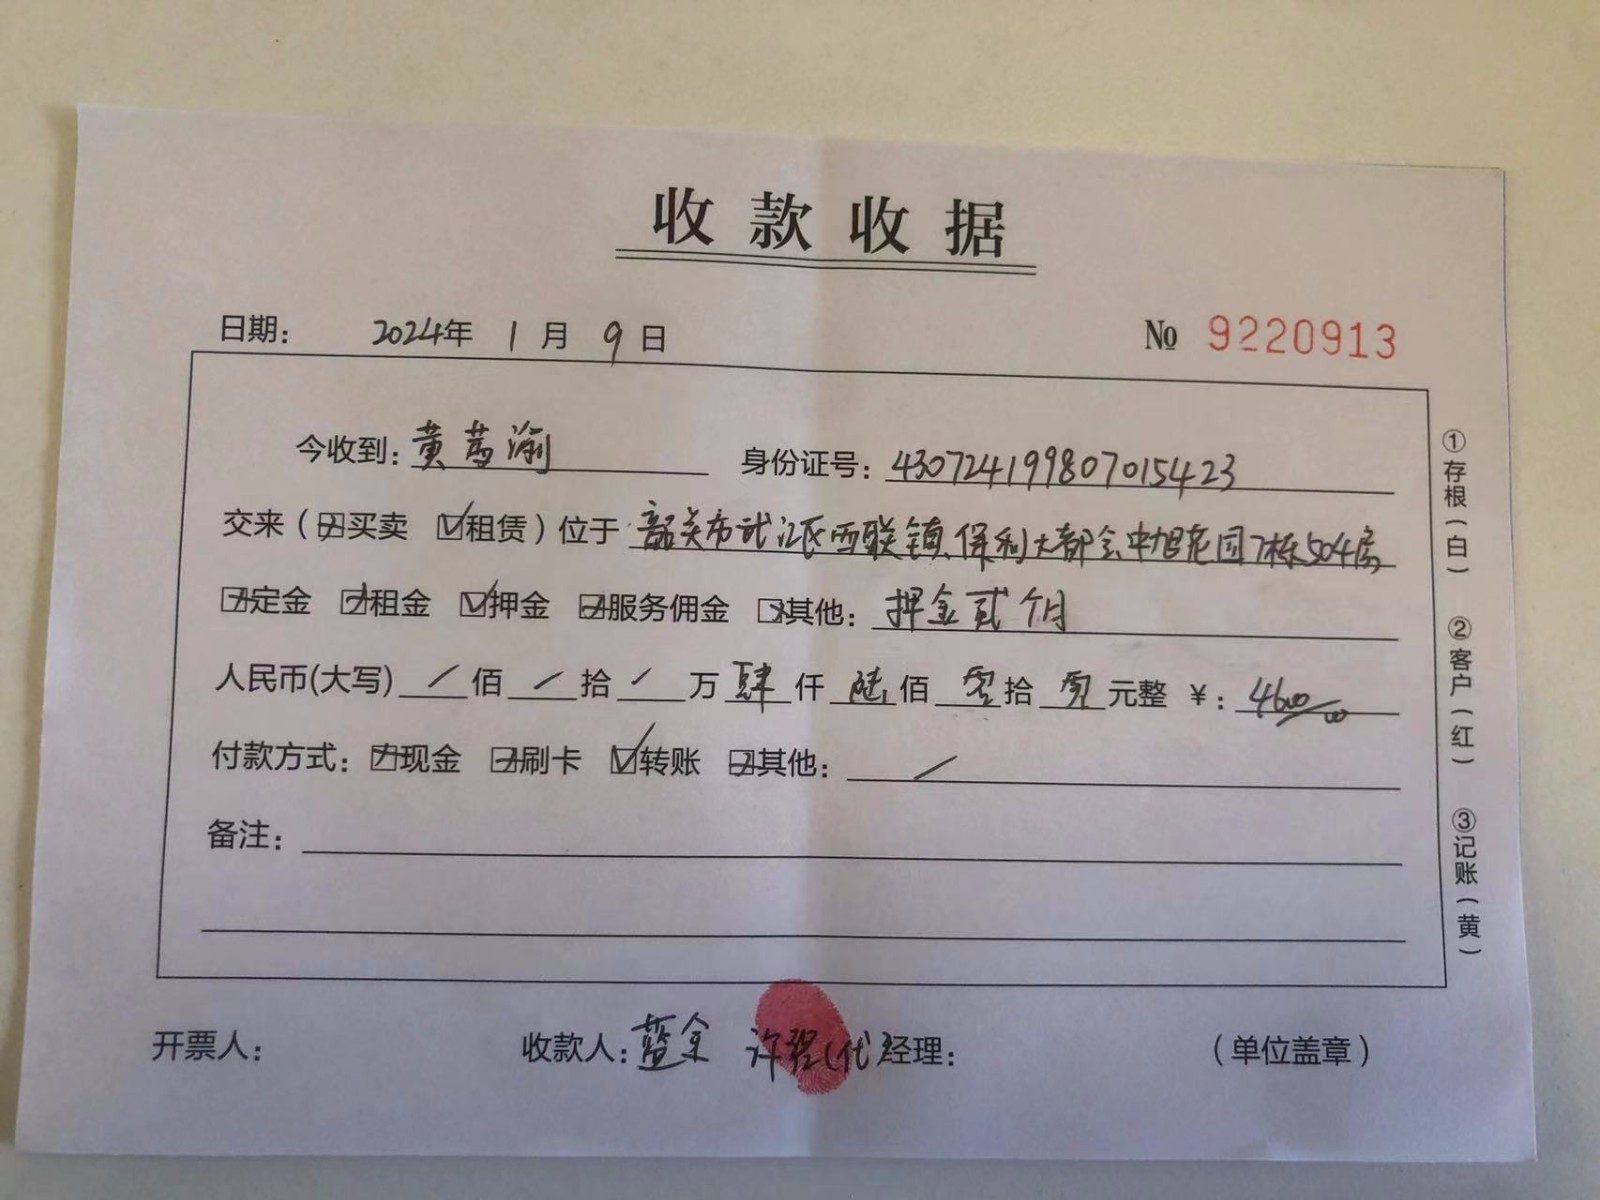 收款收据
日期： 2024年 1月 9日 № 9220913
今收到：黄 渝 身份证号：430724199807015423
交来（☑买卖 ☑租赁）位于 韶关市武江区西联镇保利大都会中旭花园7栋504房
☑定金 ☑租金 ☑押金 ☑服务佣金 ☑其他：押金贰个月
人民币(大写) / 佰 / 拾 / 万 肆 仟 陆 佰 零 拾 零 元整 ￥：4600/00
付款方式：☑现金 ☑刷卡 ☑转账 ☑其他： /
备注：
开票人： 收款人：蓝余 许 (代) 经理： （单位盖章）
①存根（白） ②客户（红） ③记账（黄）